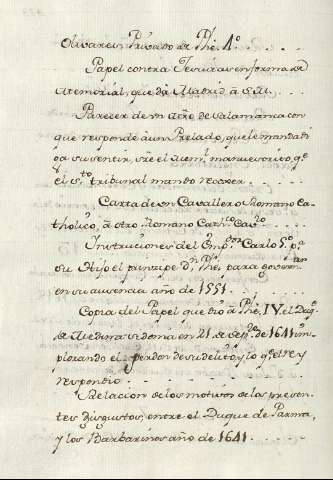 Olivares Privado de Phe. 4º
Papel contra Jesuitas en forma de
Memorial, que dá Madrid á S.M.
Parecer de un Mro de Salamanca con
que responde á un Prelado, que le manda di
ga su sentir, sre el Meml manuescrito, qe
el Sto tribunal mando recoxer.
Carta de un Cavallero Romano Ca-
tholico, á otro Romano Cathco Cavro
Instruciones del Empor Carlo 5º pa
su Hijo el principe Dn Phe. para el govierno
en su ausencia año de 1551
Copia del Papel que dió á Phe. IV. el Duqe
de Medina Sidonia en 21 de Sepre de 1641 im
plorando el perdon de su delito, y lo qe el rey
respondio
Relacion de los motivos de los presen-
tes disgustos, entre el Duque de Parma,
y los Barbarinos año de 1641.